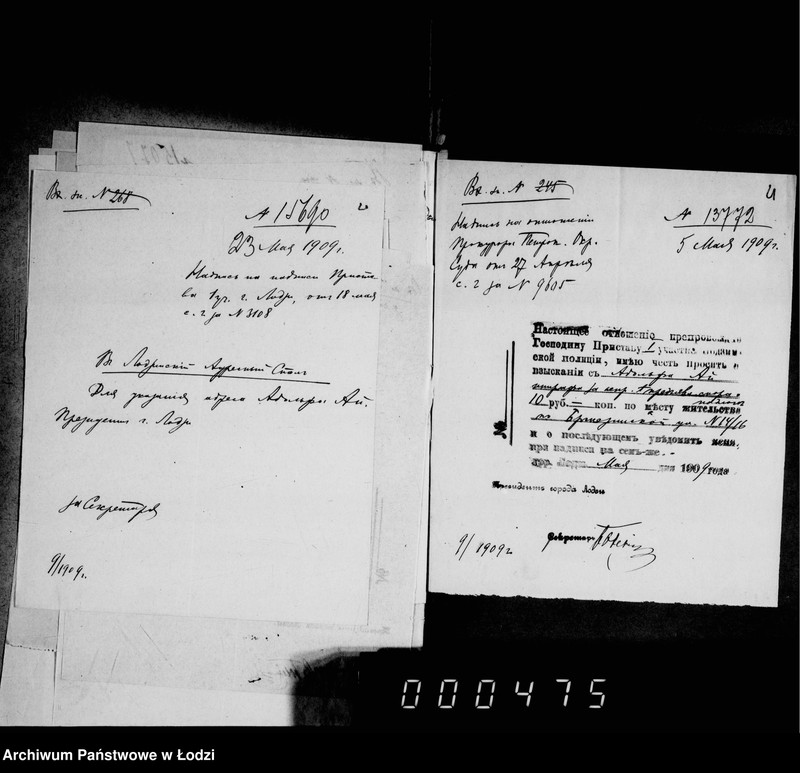 Вх. эк. N 268
N 15690
23 Мая 1909 г.
Надпись на надписи Приста
ва 1 уч. г. Лодзи, от 18 мая
с. г за N 3108
В Лодзинский Адресный Стол
Для указания адреса Адольфа Ай.
Президент г. Лодзи
за Секретаря
9/1909 г.
Вх. эк. N 245
N 13772
5 Мая 1909 г.
Надпись на отношении
Прокурора Петрок. Окр.
Суда от 27 Апреля
с. г за N 9605
Настоящее отношение препровождаю
Господину Приставу 1 участка Лодзин-
ской полиции, имею честь просить о
взыскании с Адольфа Ай
штрафа за
10 руб. — коп. по месту жительства
по ул. N 14/16
и о последующем уведомить меня,
при надписи на семъ-же.
гор. Лодзь Мая дня 1909 года
Президент города Лодзи
Секретарь
9/1909 г.
000475
Archiwum Państwowe w Łodzi